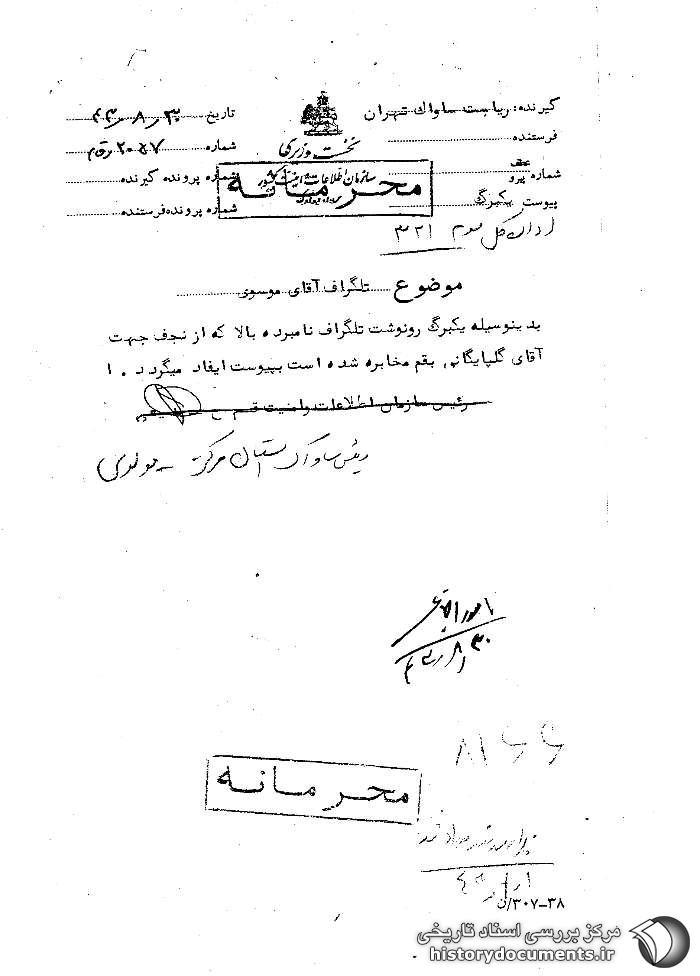 گیرنده: ریاست ساواک تهران
فرستنده
شماره پیرو عطف
پیوست یکبرگ
نخست وزیری
سازمان اطلاعات و امنیت کشور
محرمانه
تاریخ ۴۳/۸/۳۰
شماره
شماره پرونده گیرنده
شماره پرونده فرستنده
اداره کل سوم ۳۲۱
موضوع تلگراف آقای موسوی
بدینوسیله یکبرگ رونوشت تلگراف نامبرده بالا که از نجف جهت
آقای گلپایگانی بقم مخابره شده است بپیوست ایفاد میگردد. ا
رئیس سازمان اطلاعات و امنیت قم
رئیس ساواک استان مرکز – مولوی
۳۰
محرمانه
۳۰۷-۳۸/ن
مرکز بررسی اسناد تاریخی
historydocuments.ir